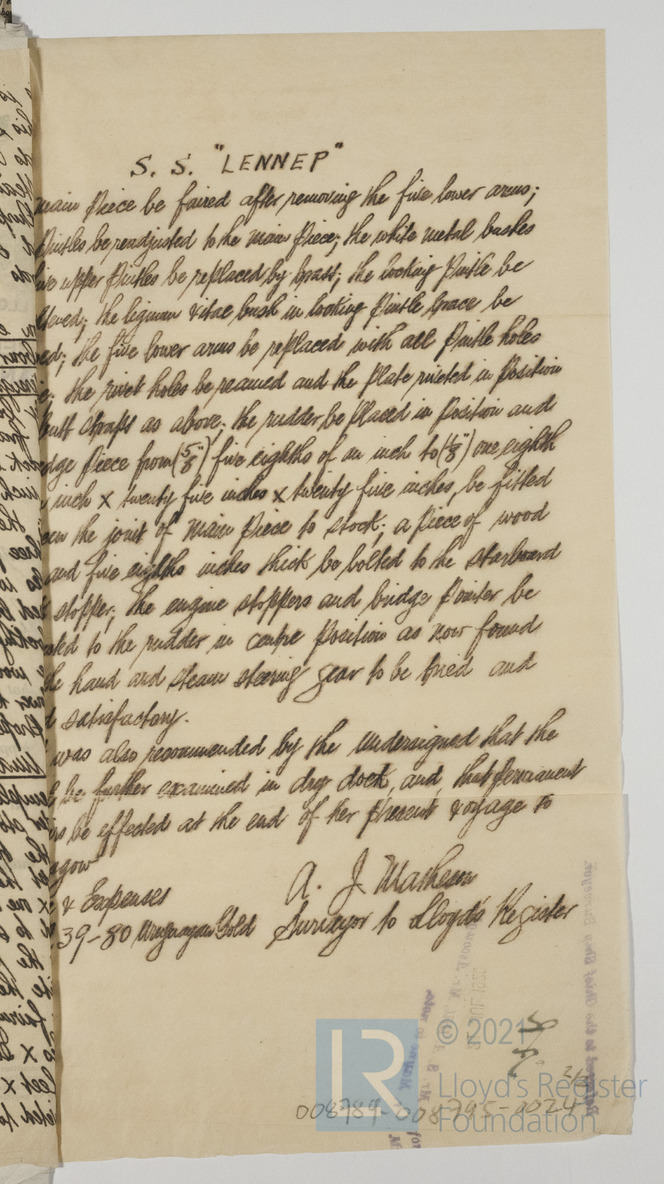 S. S. "LENNEP"
main Piece be faired after removing the five lower arms;
Pintles be readjusted to the main Piece; the white metal bushes
five upper Pintles be replaced by brass; the locking Pintle be
the lignum vitae bush in locking Pintle brace be
ed; the five lower arms be replaced with all Pintle holes
the rivet holes be reamed and the Plate riveted in Position
butt straps as above; the rudder be Placed in Position and
dge Piece from (5/8") five eighths of an inch to (1/8") one eighth
inch x twenty five inches x twenty five inches, be fitted
een the joint of Main Piece to stock; a Piece of wood
and five eighths inches thick be bolted to the starboard
stopper; the engine stoppers and bridge Pointer be
ted to the rudder in centre Position as now found
he hand and steam steering gear to be tried and
d satisfactory.
was also recommended by the undersigned that the
be further examined in dry dock, and that Permanent
rs be effected at the end of her Present voyage to
gow
& Expenses
39-80 Uruguayan Gold
A. J.
Surveyor to Lloyd's Register
© 2021
Lloyd's Register
Foundation
LR
008789-008795-0024 2/2